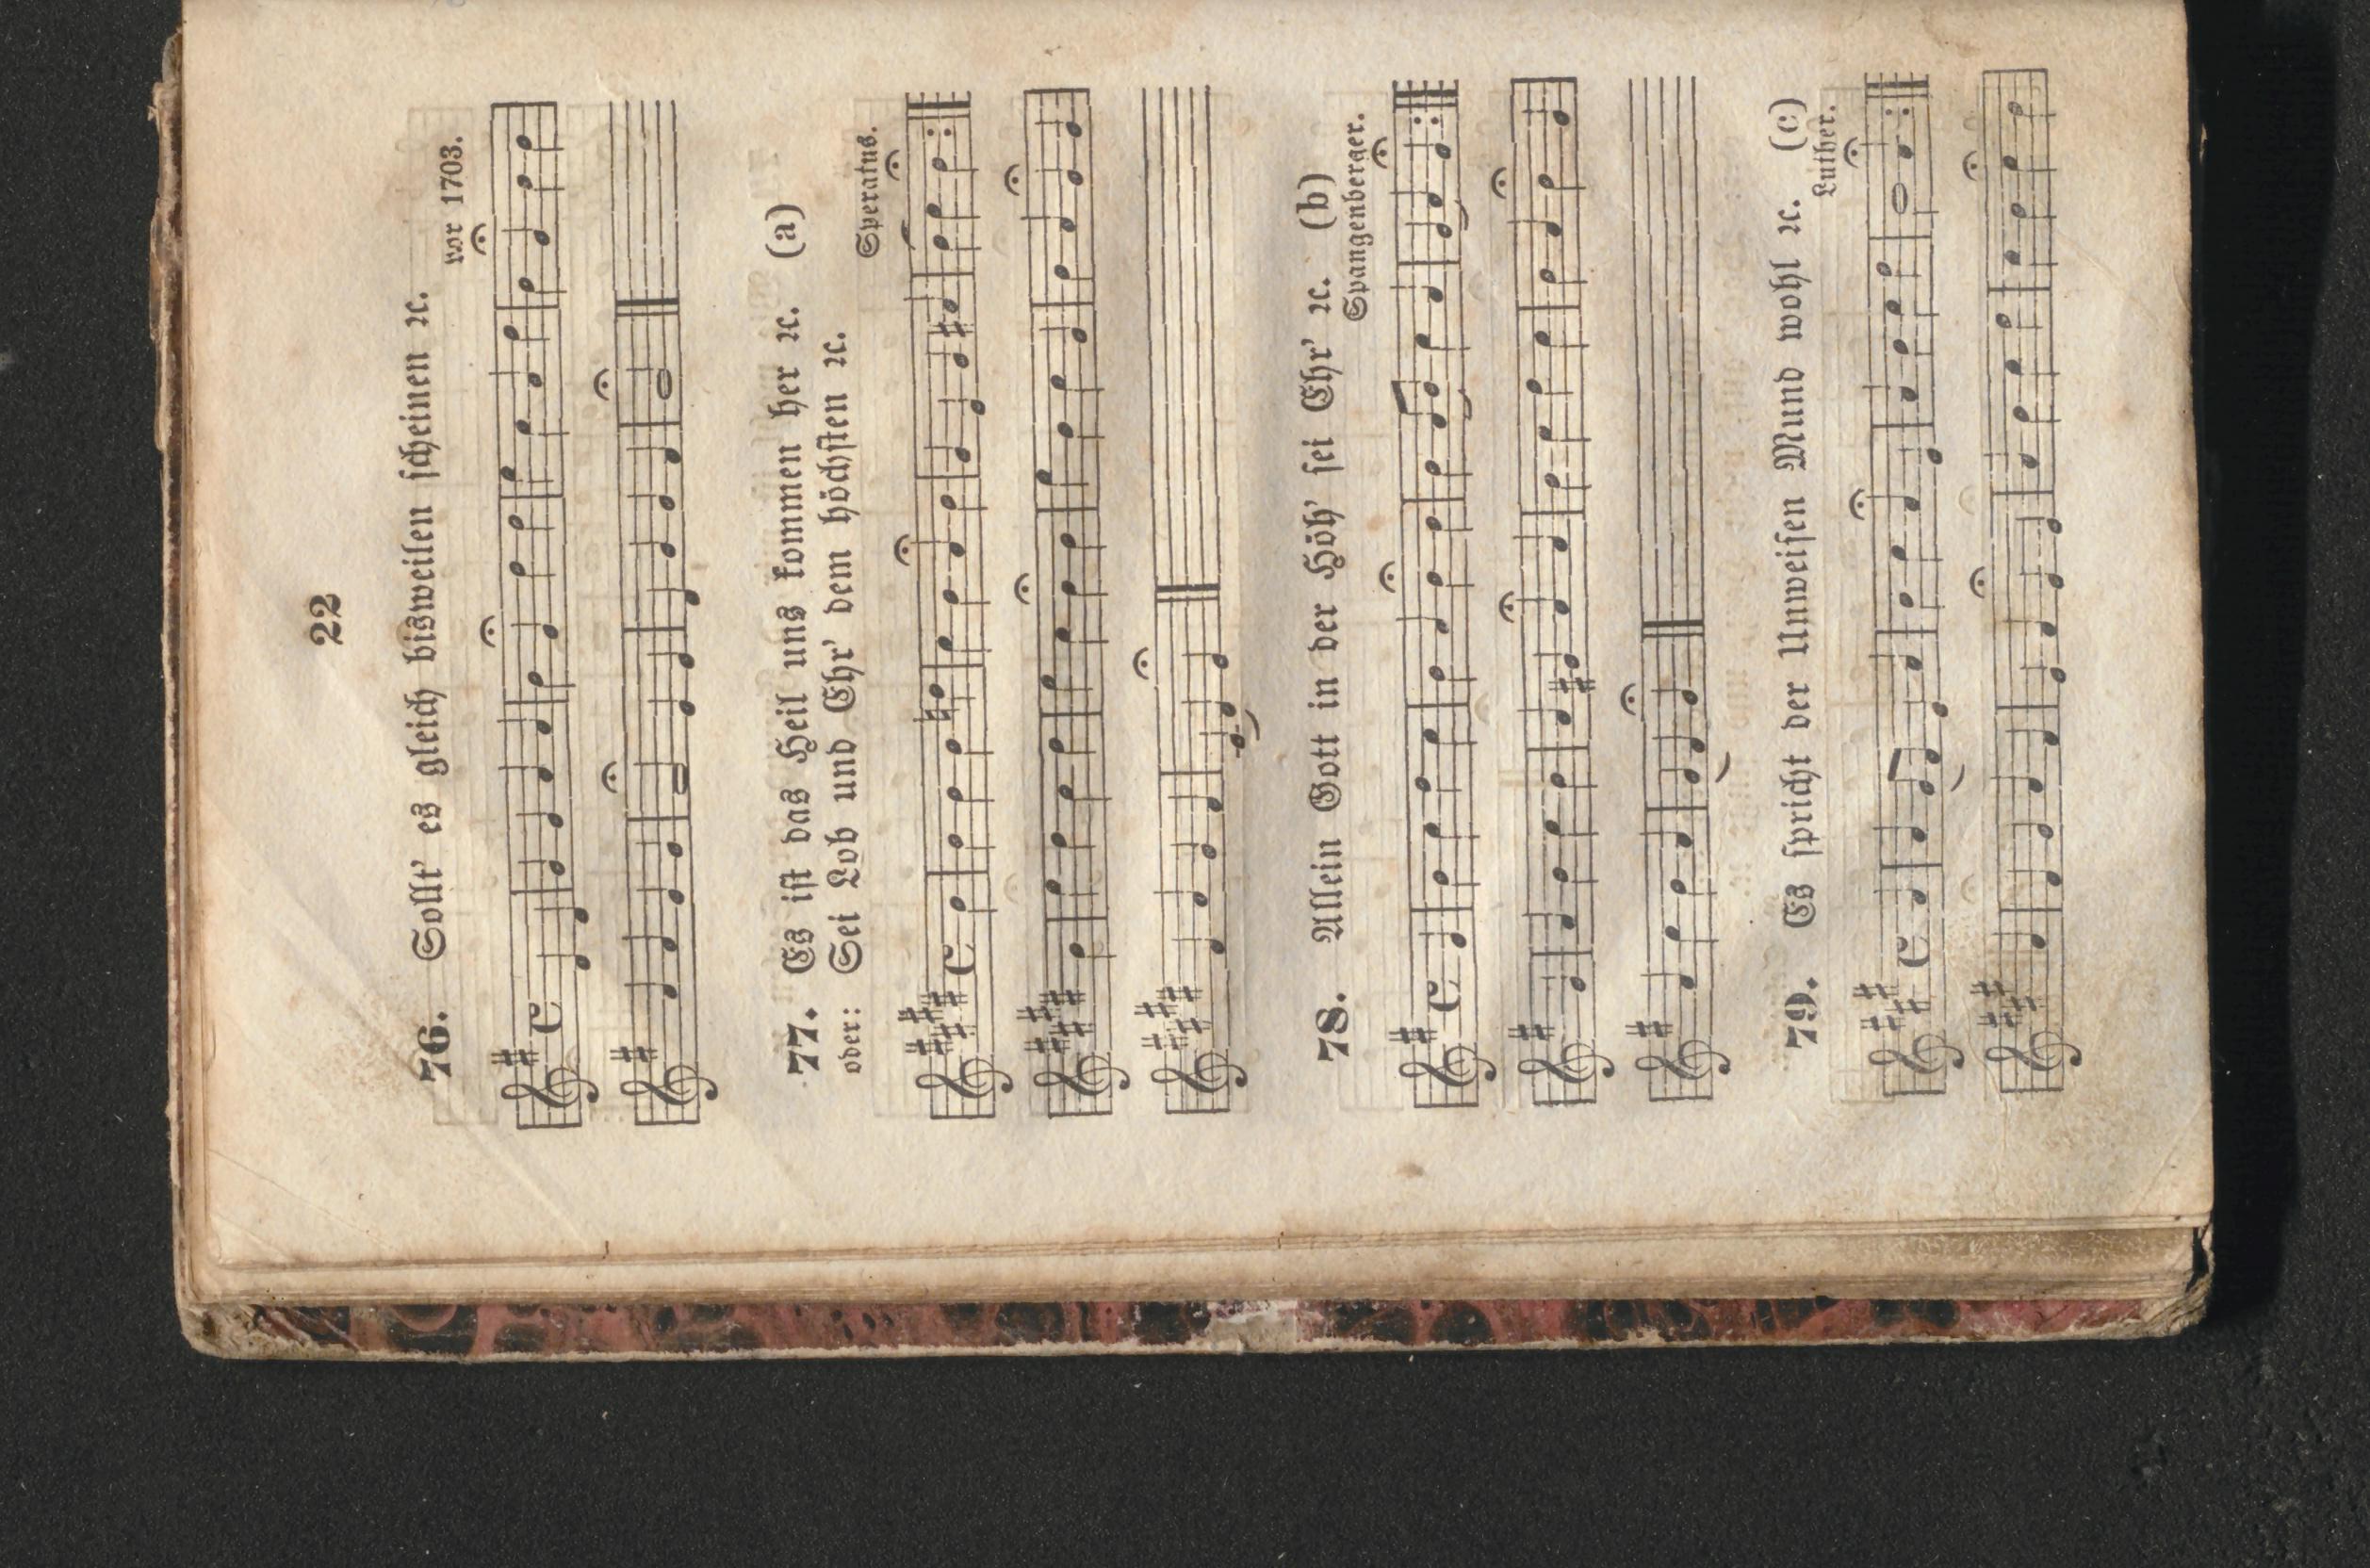 22
76. Sollt' es gleich bisweilen scheinen ꝛc.
vor 1703.
77. Es ist das Heil uns kommen her ꝛc. (a)
oder: Sei Lob und Ehr' dem höchsten ꝛc.
Speratus.
78. Allein Gott in der Höh' sei Ehr' ꝛc. (b)
Spangenberger.
79. Es spricht der Unweisen Mund wohl ꝛc. (c)
Luther.